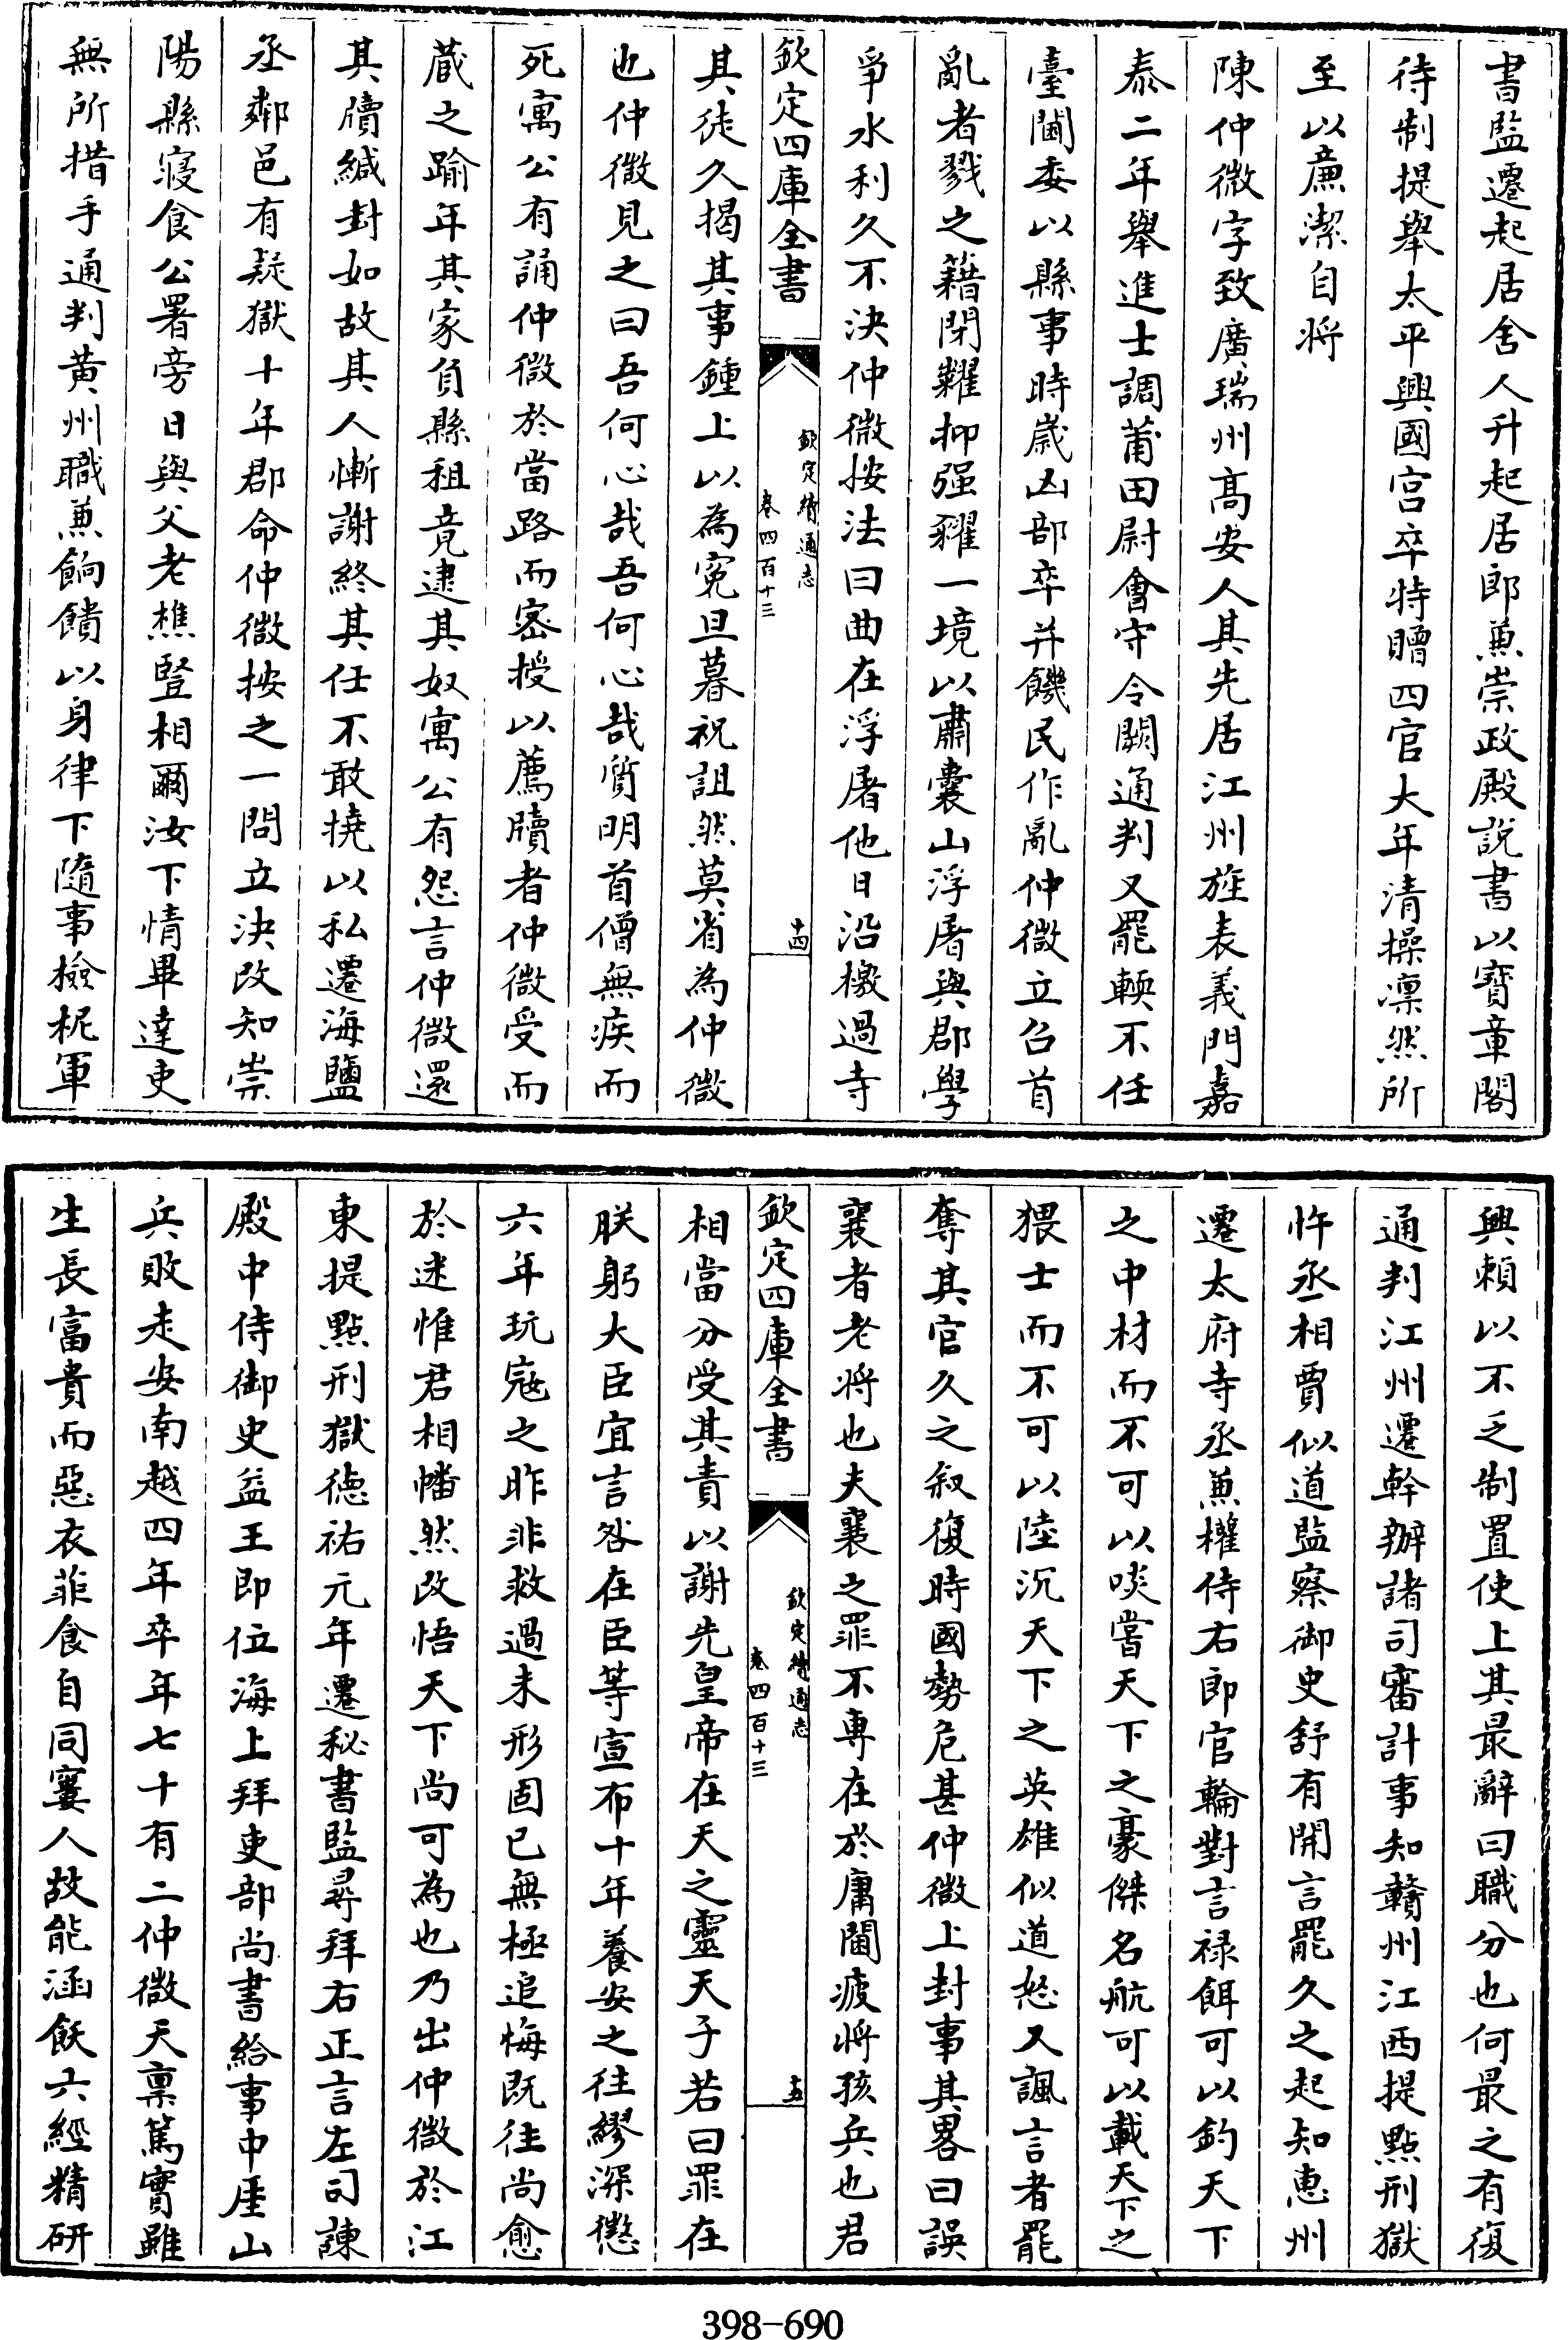 書監遷起居舍人升起居郎兼崇政殿說書以寶章閣
待制提舉太平興國宫卒特贈四官大年清操凛然所
至以亷潔自将
陳仲微字致廣瑞州髙安人其先居江州旌表義門嘉
泰二年舉進士調莆田尉會守令闕通判又罷輭不任
臺閫委以縣事時歳凶部卒并饑民作亂仲微立召首
亂者戮之籍閉糶抑强糴一境以肅囊山浮屠與郡學
爭水利久不決仲微按法曰曲在浮屠他日沿檄過寺
欽定四庫全書
欽定續通志
卷四百十三
十四
其徒久揭其事鍾上以為寃旦暮祝詛然莫省為仲微
也仲微見之曰吾何心哉吾何心哉質明首僧無疾而
死寓公有誦仲微於當路而密授以薦牘者仲微受而
蔵之踰年其家負縣租竟逮其奴寓公有怨言仲微還
其牘緘封如故其人慚謝終其任不敢撓以私遷海鹽
丞鄰邑有疑獄十年郡命仲微按之一問立決改知崇
陽縣寝食公署旁日與父老樵豎相爾汝下情畢達吏
無所措手通判黄州職兼餉饋以身律下隨事檢柅軍
興頼以不乏制置使上其最辭曰職分也何最之有復
通判江州遷幹辦諸司審計事知贛州江西提點刑獄
忤丞相賈似道監察御史舒有開言罷久之起知惠州
遷太府寺丞兼權侍右郎官輪對言禄餌可以釣天下
之中材而不可以啖嘗天下之豪傑名航可以載天下之
猥士而不可以陸沉天下之英雄似道怒又諷言者罷
奪其官久之叙復時國勢危甚仲微上封事其畧曰誤
襄者老将也夫襄之罪不専在於庸閫疲将孩兵也君
欽定四庫全書
欽定續通志
卷四百十三
十五
相當分受其責以謝先皇帝在天之靈天子若曰罪在
朕躬大臣宜言咎在臣等宣布十年養安之往繆深懲
六年玩寇之昨非救過未形固已無極追悔既往尚愈
於迷惟君相幡然改悟天下尚可為也乃出仲微於江
東提點刑獄徳祐元年遷秘書監尋拜右正言左司諫
殿中侍御史益王即位海上拜吏部尚書給事中厓山
兵敗走安南越四年卒年七十有二仲微天稟篤實雖
生長富貴而惡衣菲食自同窶人故能涵飫六經精研
398-690